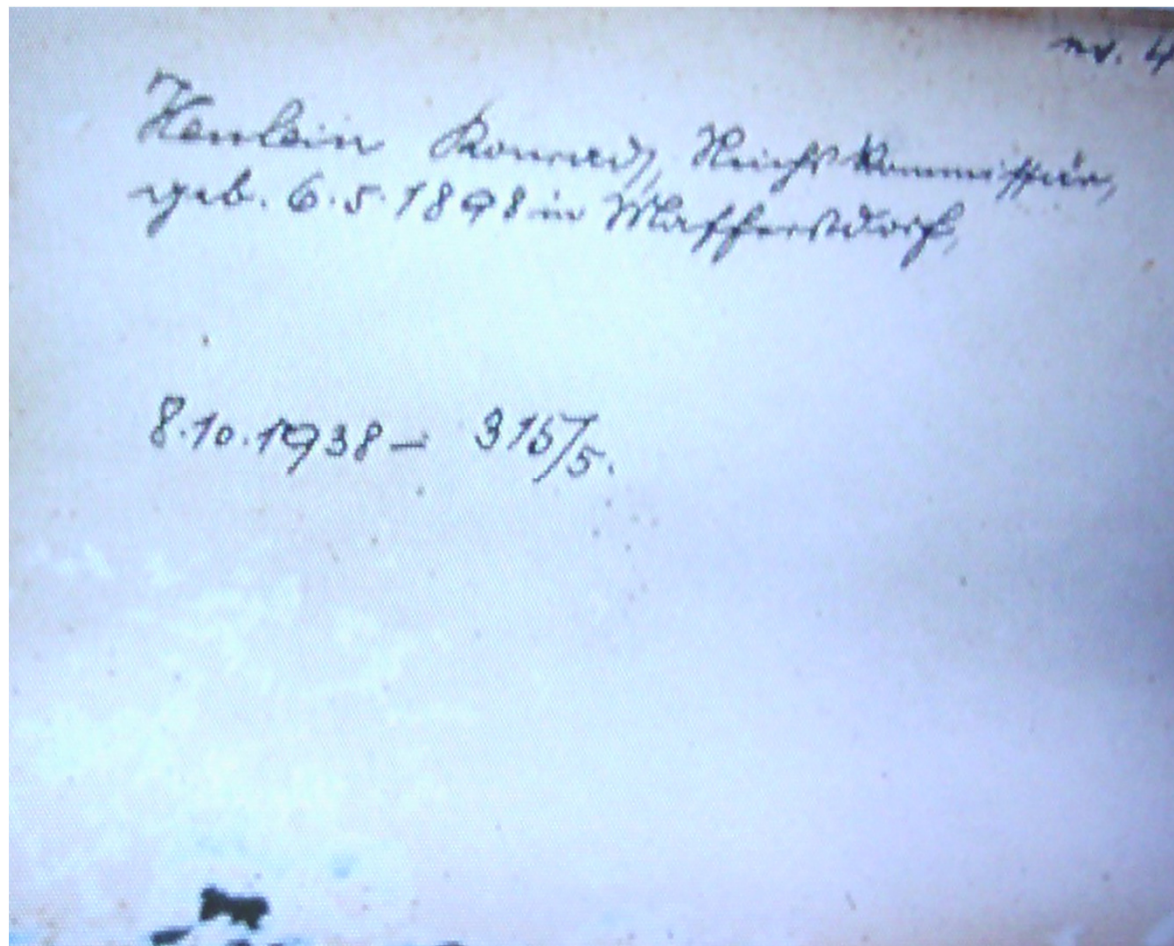 nr. 4
Henlein Konrad, Reichskommissär,
geb. 6.5.1898 in Maffersdorf,
8.10.1938 – 315/5.